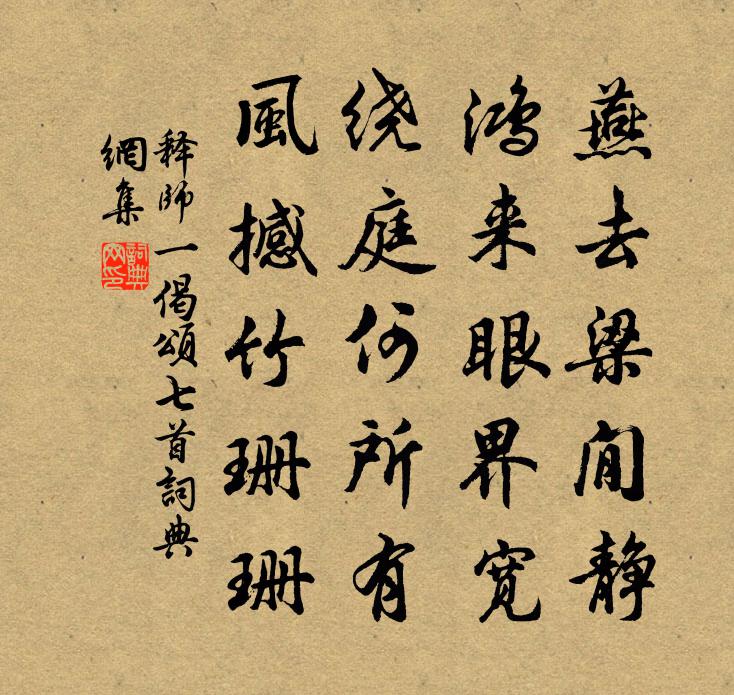 燕去梁间静
鸿来眼界宽
绕庭何所有
風撼竹珊珊
释師一偈頌七首詞典
網集
詞典
网印